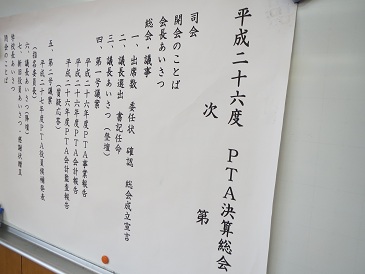 平成二十六度 PTA決算総会
次 第
司会
開会のことば
会長あいさつ
総会・議事
一、出席数 委任状 確認 総会成立宣言
二、議長選出 書記任命
三、議長あいさつ(登壇)
四、第一号議案
平成二十六年度PTA事業報告
平成二十六年度PTA会計報告
平成二十六年度PTA会計監査報告
(質疑応答)
五、第二号議案
平成二十七年度PTA役員候補発表
(指名委員長)
六、議長あいさつ(降壇)
七、新旧役員あいさつ・感謝状贈呈
学校長あいさつ
閉会のことば